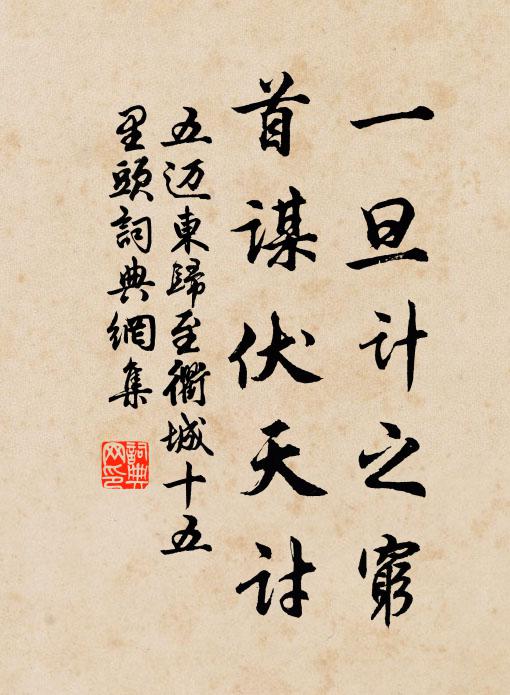 一旦計之窮
首謀伏天討
五迈東歸至衢城十五
里頭詞典網集
詞典
网印